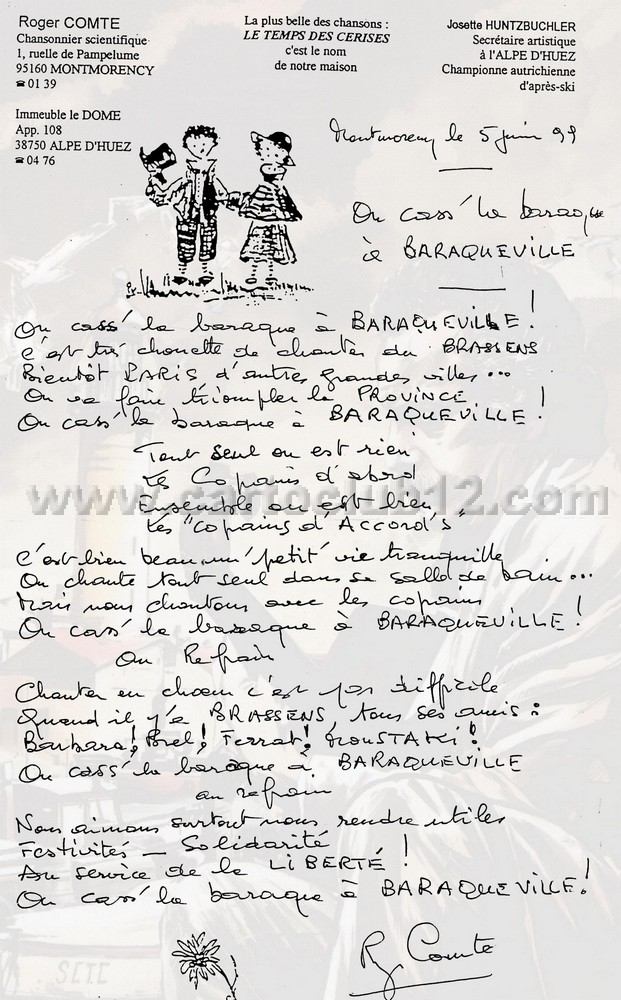 Roger COMTE
Chansonnier scientifique
1, ruelle de Pampelume
95160 MONTMORENCY
☎ 01 39
Immeuble le DOME
App. 108
38750 ALPE D'HUEZ
☎ 04 76
La plus belle des chansons :
LE TEMPS DES CERISES
c'est le nom
de notre maison
Josette HUNTZBUCHLER
Secrétaire artistique
à l'ALPE D'HUEZ
Championne autrichienne
d'après-ski
Montmorency le 5 juin 99
On cass' la baraque
à BARAQUEVILLE
On cass' la baraque à BARAQUEVILLE !
C'est très chouette de chanter du BRASSENS
Bientôt PARIS d'autres grandes villes ...
On va faire triompher la PROVINCE !
On cass' la baraque à BARAQUEVILLE !
Tout seul on est rien
Les Copains d'abord
Ensemble on est bien
Les "Copains d'Accord's"
www.cartoclub12.com
C'est bien beau un' petit' vie tranquille
On chante tout seul dans sa salle de bain ...
Mais nous chantons avec les copains
On cass' la baraque à BARAQUEVILLE !
au Refrain
Chanter en chœur c'est pas difficile
Quand il y'a BRASSENS, tous ses amis :
Barbara ! Brel ! Ferrat ! MOUSTAKI !
On cass' la baraque à BARAQUEVILLE
au refrain
Nous aimons surtout nous rendre utiles
Festivités _ Solidarité
Au service de la LIBERTÉ !
On cass' la baraque à BARAQUEVILLE !
R. Comte
SETE